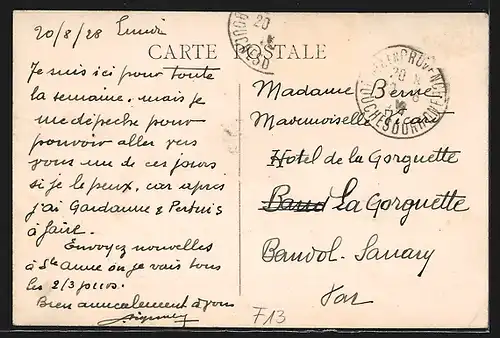 20/8/28 Lundi
CARTE POSTALE
Je suis ici pour toute
la semaine, mais je
me dépêche pour
pouvoir aller vers
vous un de ces jours
si je le peux, car après
j'ai Gardanne & Pertuis
à faire.
Envoyez nouvelles
à Ste Anne où je vais tous
les 2/3 jours.
Bien amicalement à vous
Madame Berne
Mademoiselle Sicart
Hotel de la Gorguette
La Gorguette
Bandol-Sanary
Var
F13